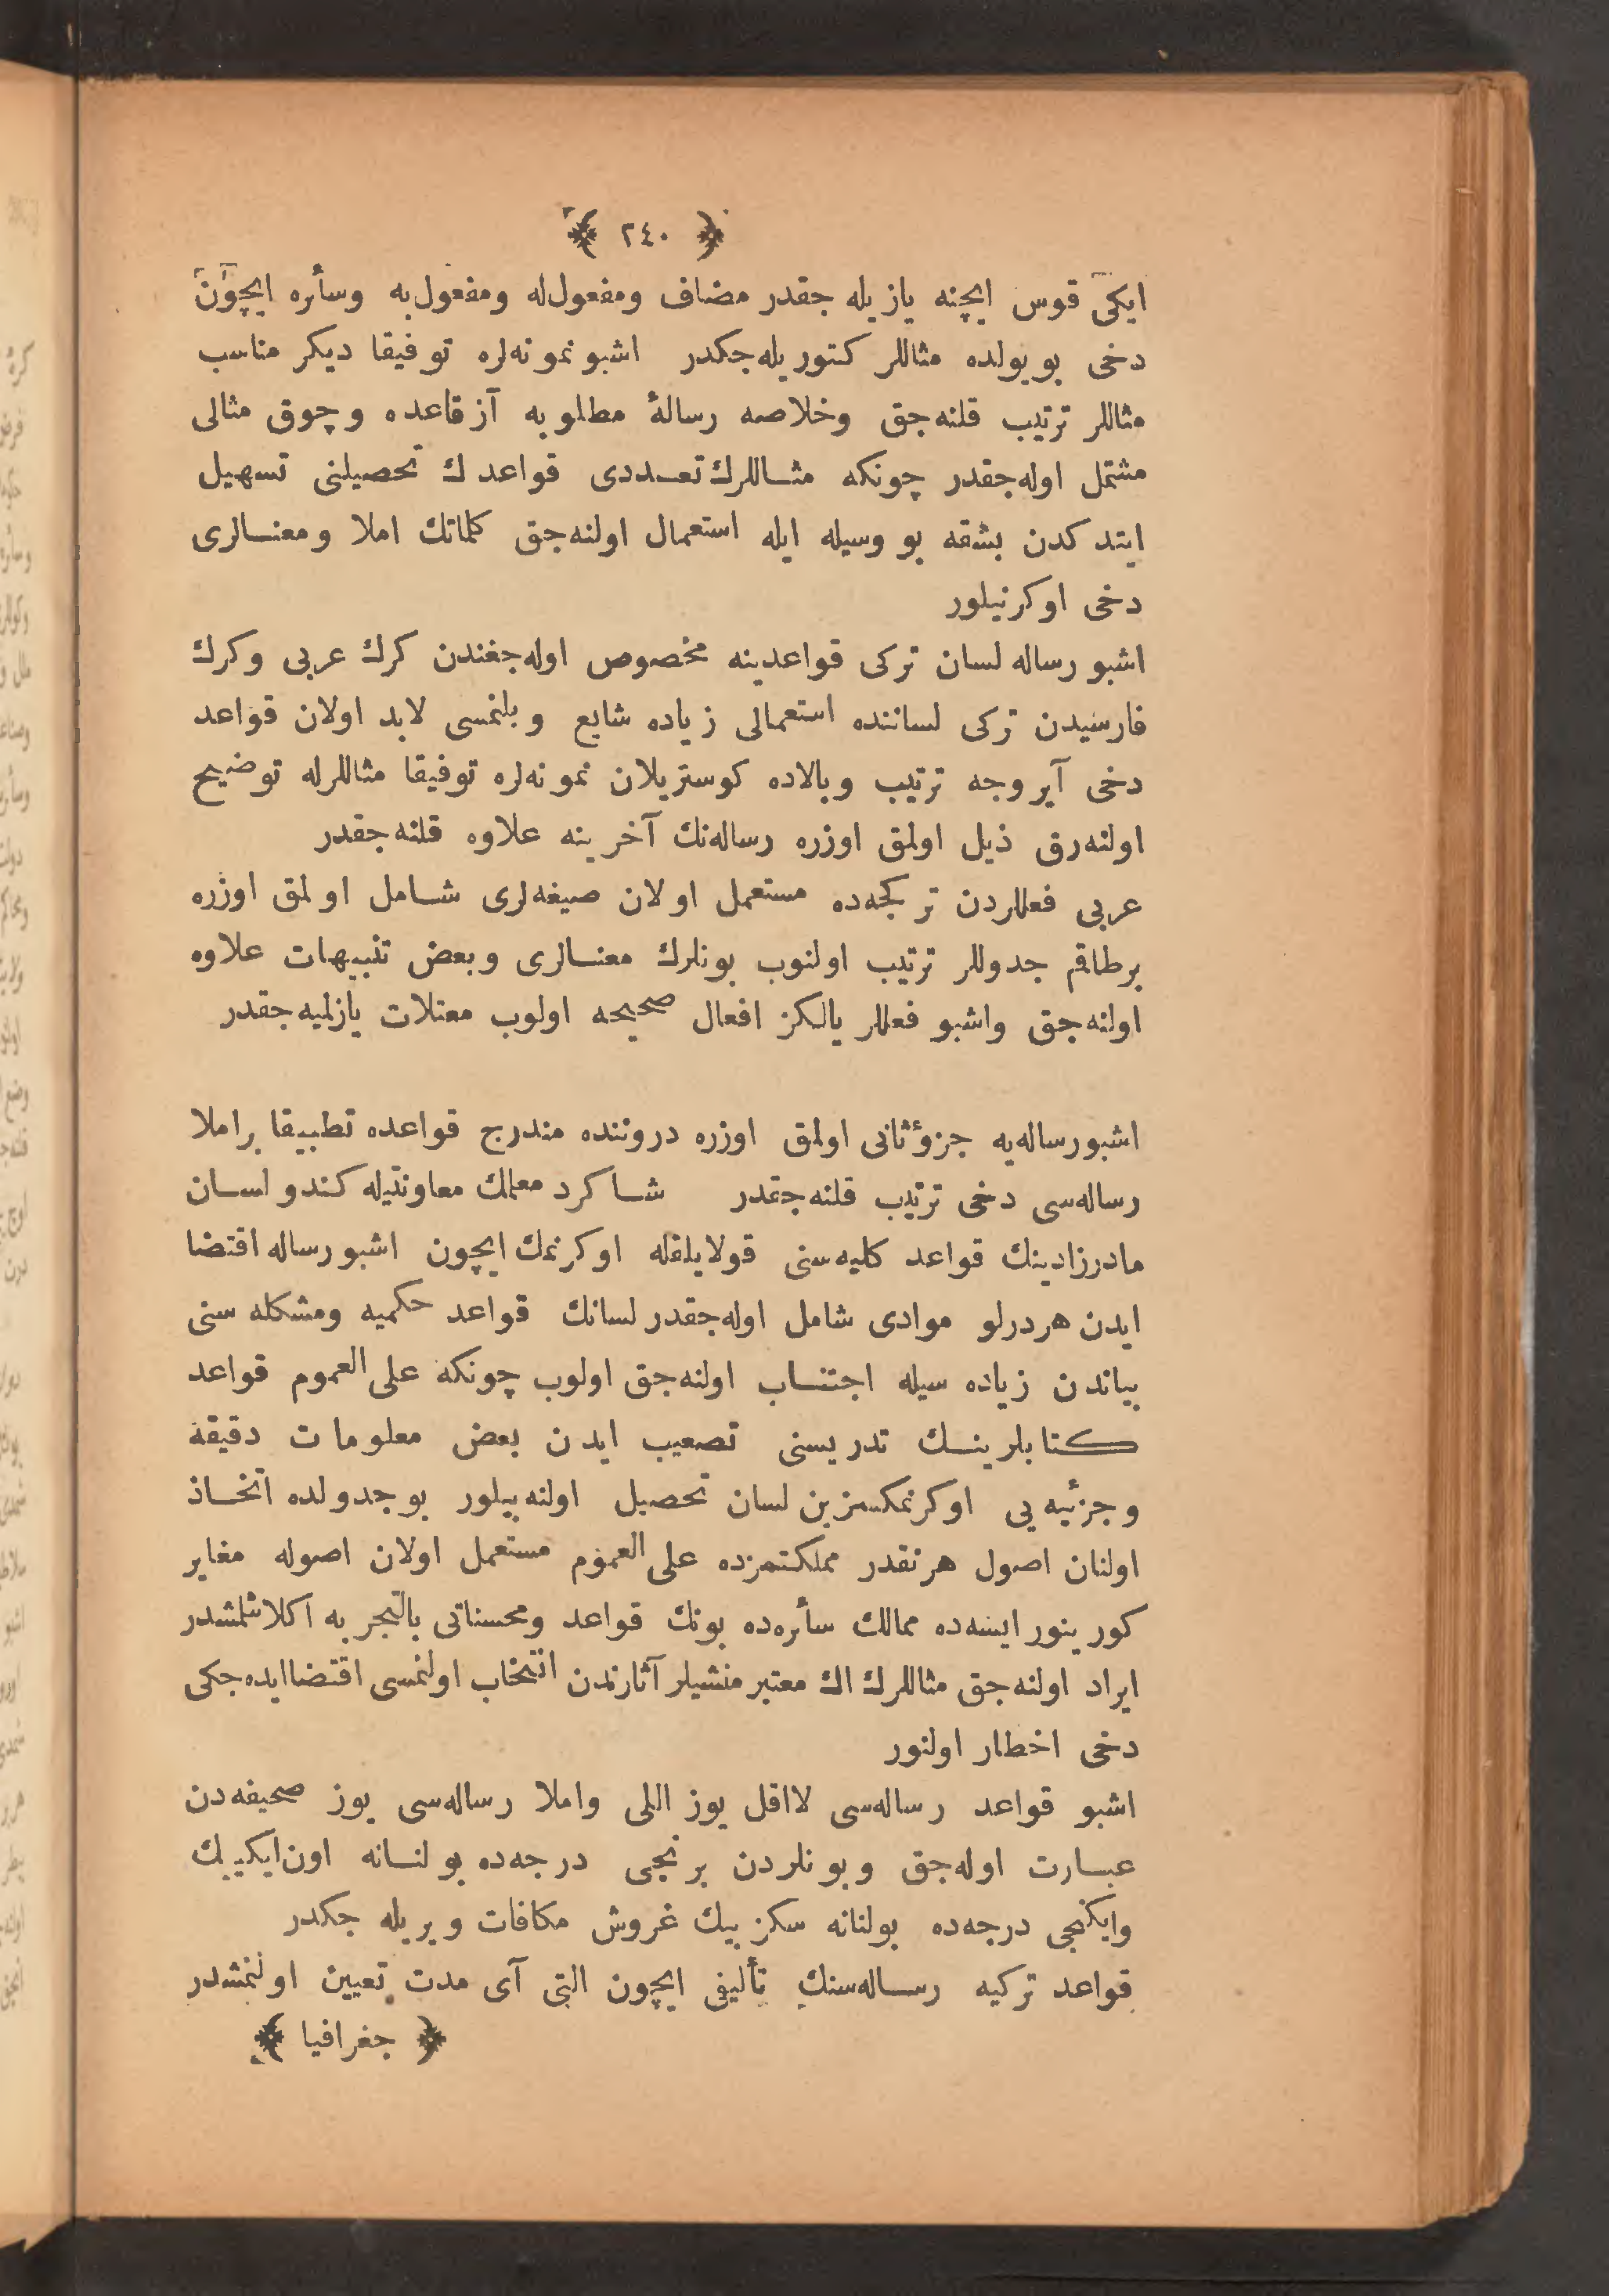 ﴿ ٢٤٠ ﴾
ایكی قوس ایچنه یازیله جقدر مضاف ومفعول‌له ومفعول‌به وسأره ایچون
دخی بویولده مثاللر كتوریله‌جكدر اشبو نمونه‌لره توفیقا دیكر مناسب
مثاللر ترتیب قلنه‌جق وخلاصه رسالۀ مطلوبه آز قاعده وچوق مثالی
مشتمل اوله‌جقدر چونكه مثـاللرك تعـددی قواعدك تحصیلنی تسهیل
ایتدكدن بشقه بو وسیله ایله استعمال اولنه‌جق كلماتك املا ومعنـالری
دخی اوكرنیلور
اشبو رساله لسان تركی قواعدینه مخصوص اوله‌جغندن كرك عربی وكرك
فارسیدن تركی لساننده استعمالی زیاده شایع وبلنمسی لابد اولان قواعد
دخی آیروجه ترتیب وبالاده كوستریلان نمونه‌لره توفیقا مثاللرله توضیح
اولنه‌رق ذیل اولمق اوزره رساله‌نك آخرینه علاوه قلنه‌جقدر
عربی فعللردن تركجه‌ده مستعمل اولان صیغه‌لری شـامل اولمق اوزره
برطاقم جدوللر ترتیب اولنوب بونلرك معنـالری وبعض تنبیهات علاوه
اولنه‌جق واشبو فعللر یالكز افعال صحیحه اولوب معتلات یازلمیه‌جقدر
اشبورساله‌یه جزؤثانی اولمق اوزره دروننده مندرج قواعده تطبیقا براملا
رساله‌سی دخی ترتیب قلنه‌جقدر شـاكرد معلمك معاونتیله كندو لسـان
مادرزادینك قواعد كلیه‌سنی قولایلقله اوكرنمك ایچون اشبورساله اقتضا
ایدن هردرلو موادی شامل اوله‌جقدر لسانك قواعد حكمیه ومشكله سنی
بیاندن زیاده سیله اجتنـاب اولنه‌جق اولوب چونكه علی العموم قواعد
كتابلرینـك تدریسنی تصعیب ایدن بعض معلومات دقیقه
وجزئیه‌یی اوكرنمكسزین لسان تحصیل اولنه‌بیلور بوجدولده اتخـاذ
اولنان اصول هرنقدر مملكتمزده علی العموم مستعمل اولان اصوله مغایر
كورینور ایسه‌ده ممالك سأره‌ده بونك قواعد ومحسناتی بالتجربه اكلاشلمشدر
ایراد اولنه‌جق مثاللرك اك معتبر منشیلر آثارندن انتخاب اولنمسی اقتضاایده‌جكی
دخی اخطار اولنور
اشبو قواعد رساله‌سی لااقل یوز اللی واملا رساله‌سی یوز صحیفه‌دن
عبـارت اوله‌جق وبونلردن برنجی درجه‌ده بولنـانه اون‌ایكی‌بیك
وایكنجی درجه‌ده بولنانه سكز بیك غروش مكافات ویریله جكدر
قواعد تركیه رسـاله‌سنك تألیفی ایچون التی آی مدت تعیین اولنمشدر
﴿ جغرافیا ﴾